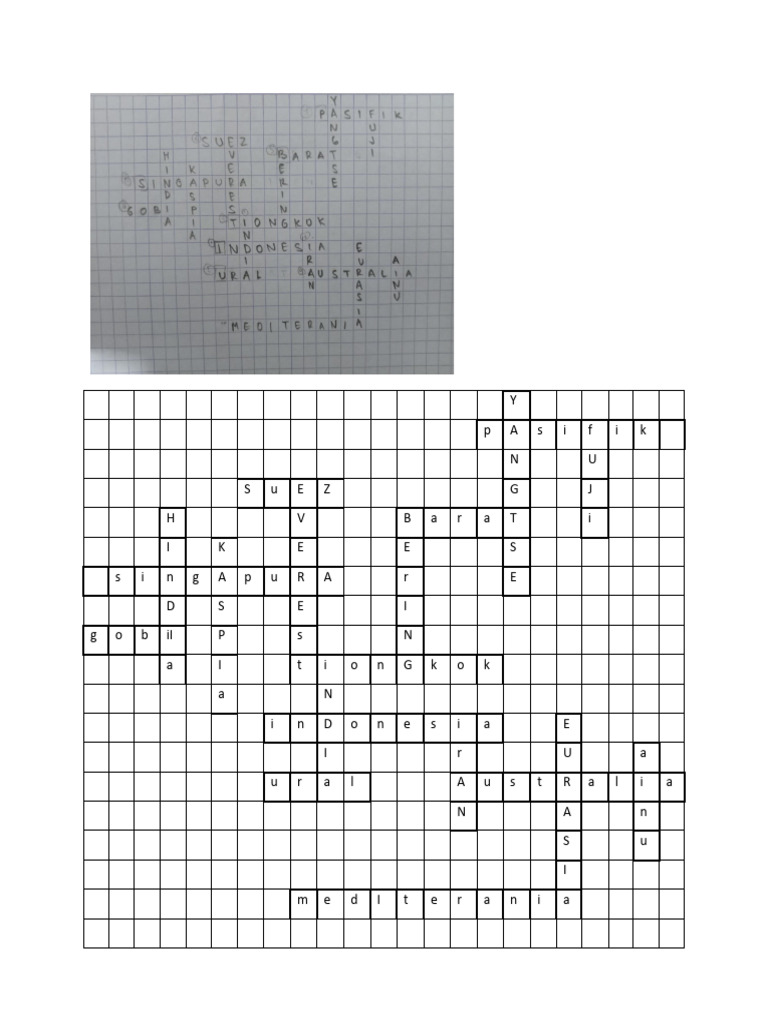 Y
PASIFIK
N U
SUEZ G J
H V BARAT I
I K E E S
SINGAPURA R E
D S E I
GOBI P S N
A I TIONGKOK
A N
INDONESIA E
I R U A
URAL AUSTRALIA
N A N
S U
I
MEDITERANIA
Y
p A s i f i k
N U
S u E Z G J
H V B a r a T i
I K E E S
s i n g A p u R A r E
D S E I
g o b il P s N
a I t i o n G k o k
a N
i n D o n e s i a E
I r U a
u r a l A u s t R a l i a
N A n
S u
I
m e d I t e r a n i a